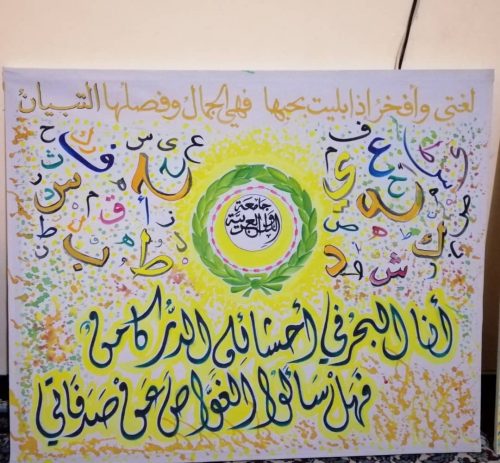 لغتي وأفخر إذا بليت بحبها فهي الجمال وفصلها التبيان
جامعة
الدول العربية
أنا البحر في أحشائه الدُّر كامن
فهل سَألوا الغَوّاصَ عن صَدَفَاتي